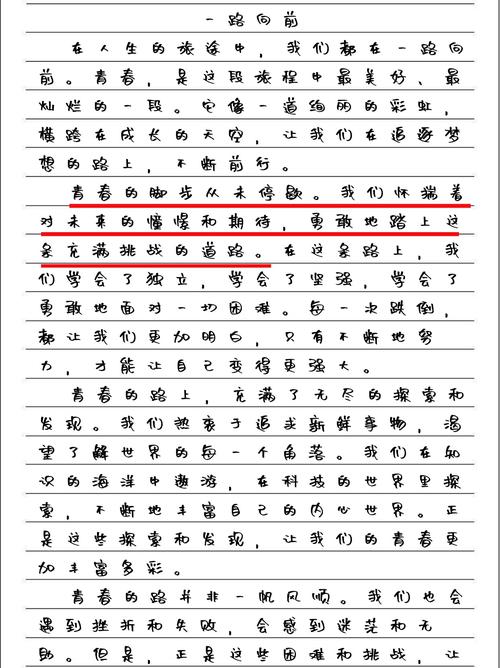 一路向前
在人生的旅途中，我们都在一路向
前。青春，是这段旅程中最美好、最
灿烂的一段。它像一道绚丽的彩虹，
横跨在成长的天空，让我们在追逐梦
想的路上，不断前行。
青春的脚步从未停歇。我们怀揣着
对未来的憧憬和期待，勇敢地踏上这
条充满挑战的道路。在这条路上，我
们学会了独立，学会了坚强，学会了
勇敢地面对一切困难。每一次跌倒，
都让我们更加明白，只有不断地努
力，才能让自己变得更强大。
青春的路上，充满了无尽的探索和
发现。我们热衷于追求新鲜事物，渴
望了解世界的每一个角落。我们在知
识的海洋中遨游，在科技的世界里探
索，不断地丰富自己的内心世界。正
是这些探索和发现，让我们的青春更
加丰富多彩。
青春的路并非一帆风顺。我们也会
遇到挫折和失败，会感到迷茫和无
助。但是，正是这些困难和挑战，让